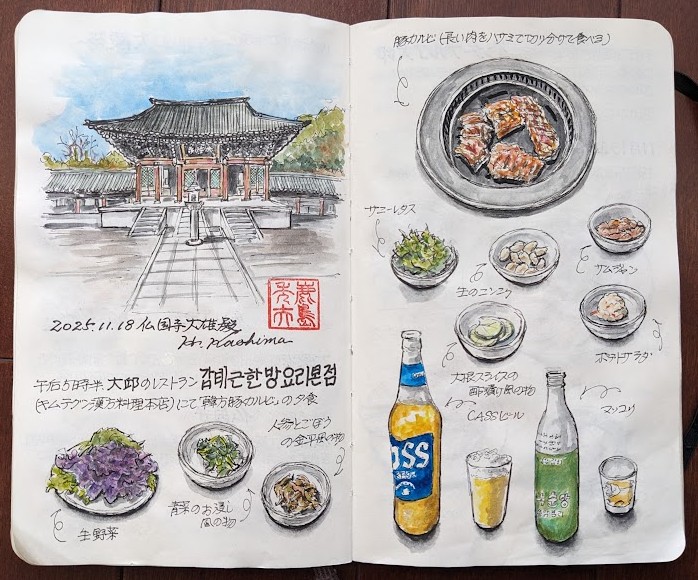 2025.11.18 仏国寺大雄殿
H. Kashima
鹿島
午后5時半 大邱のレストラン 한방요리본점
(キムテグン漢方料理本店)にて「韓方豚カルビ」の夕食
人参とごぼう
の金平風の物
青菜のお浸し
風の物
生野菜
豚カルビ(長い肉をハサミで切り分けて食べる)
サニーレタス
生のニンニク
サムジャン
ポテトサラダ
大根スライスの
酢漬け風の物
CASSビール
マッコリ